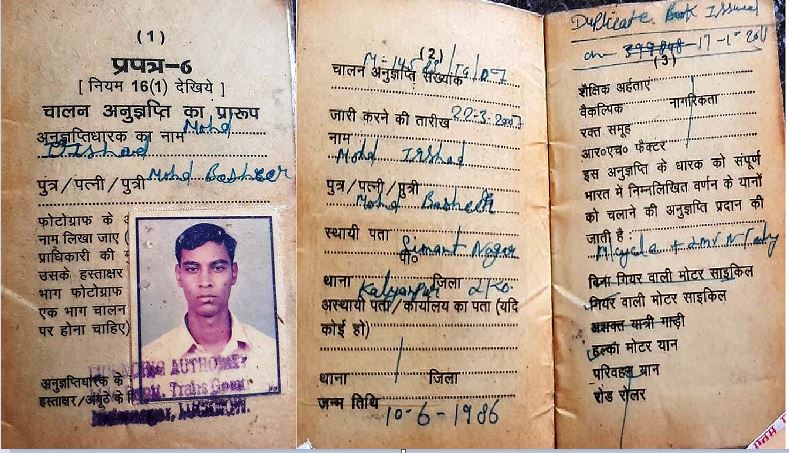 (1)
प्रपत्र-6
[ नियम 16(1) देखिये ]
चालन अनुज्ञप्ति का प्रारूप
अनुज्ञप्तिधारक का नाम Mohd
Irshad
पुत्र/पत्नी/पुत्री Mohd Basheer
फोटोग्राफ के
नाम लिखा जाए
प्राधिकारी की
उसके हस्ताक्षर
भाग फोटोग्राफ
एक भाग चालन
पर होना चाहिए)
अनुज्ञप्तिधारक के
हस्ताक्षर/अंगूठे के
AUTHORITY
Trans Gomti
LUCKNOW.
(2)
चालन अनुज्ञप्ति संख्यांक
जारी करने की तारीख 22-3-2007
नाम
Mohd Irshad
पुत्र/पत्नी/पुत्री
Mohd Basheer
स्थायी पता Simant Nagar
थाना Kalyanpur जिला LKo.
अस्थायी पता/कार्यालय का पता (यदि
कोई हो)
थाना जिला
जन्म तिथि 10-6-1986
Duplicate Book Issued
on 17-1-2011
(3)
शैक्षिक अर्हताएं
वैकल्पिक नागरिकता
रक्त समूह
आर०एच० फैक्टर
इस अनुज्ञप्ति के धारक को संपूर्ण
भारत में निम्नलिखित वर्णन के यानों
को चलाने की अनुज्ञप्ति प्रदान की
जाती है :
M/cycle + LMV N
बिना गियर वाली मोटर साइकिल
गियर वाली मोटर साइकिल
अशक्त यात्री गाड़ी
हल्का मोटर यान
परिवहन यान
रोड रोलर